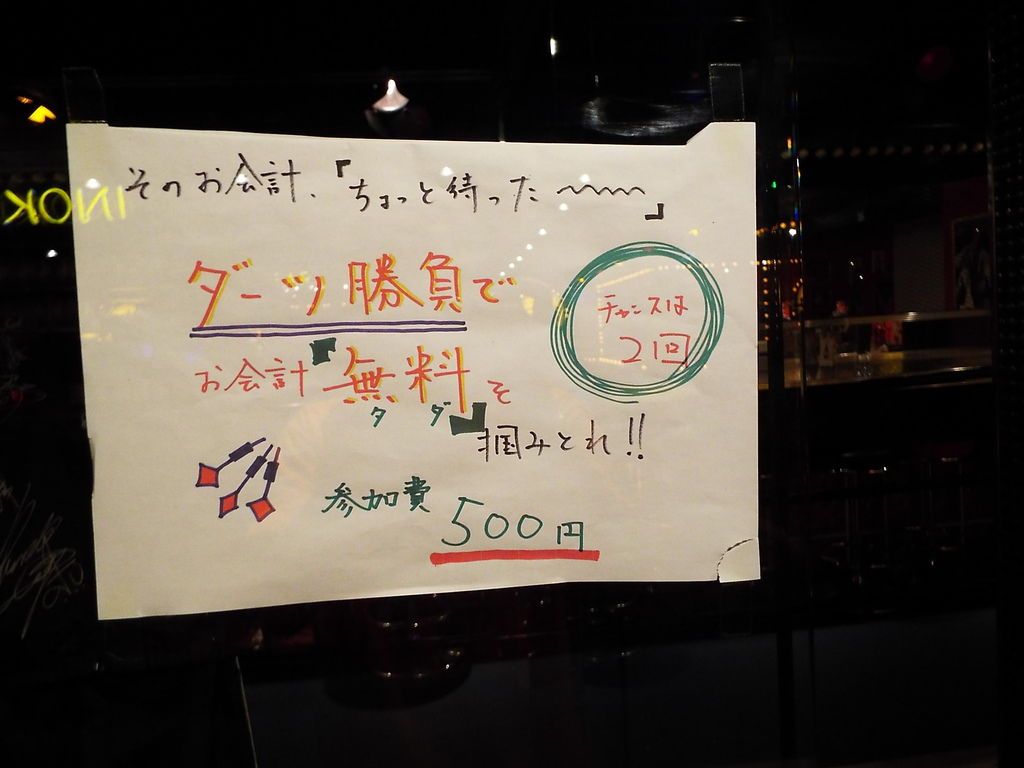 そのお会計、『ちょっと待った〜〜〜〜』
ダーツ勝負で
お会計『無料』を
タダ
掴みとれ!!
チャンスは
2回
参加費 500円